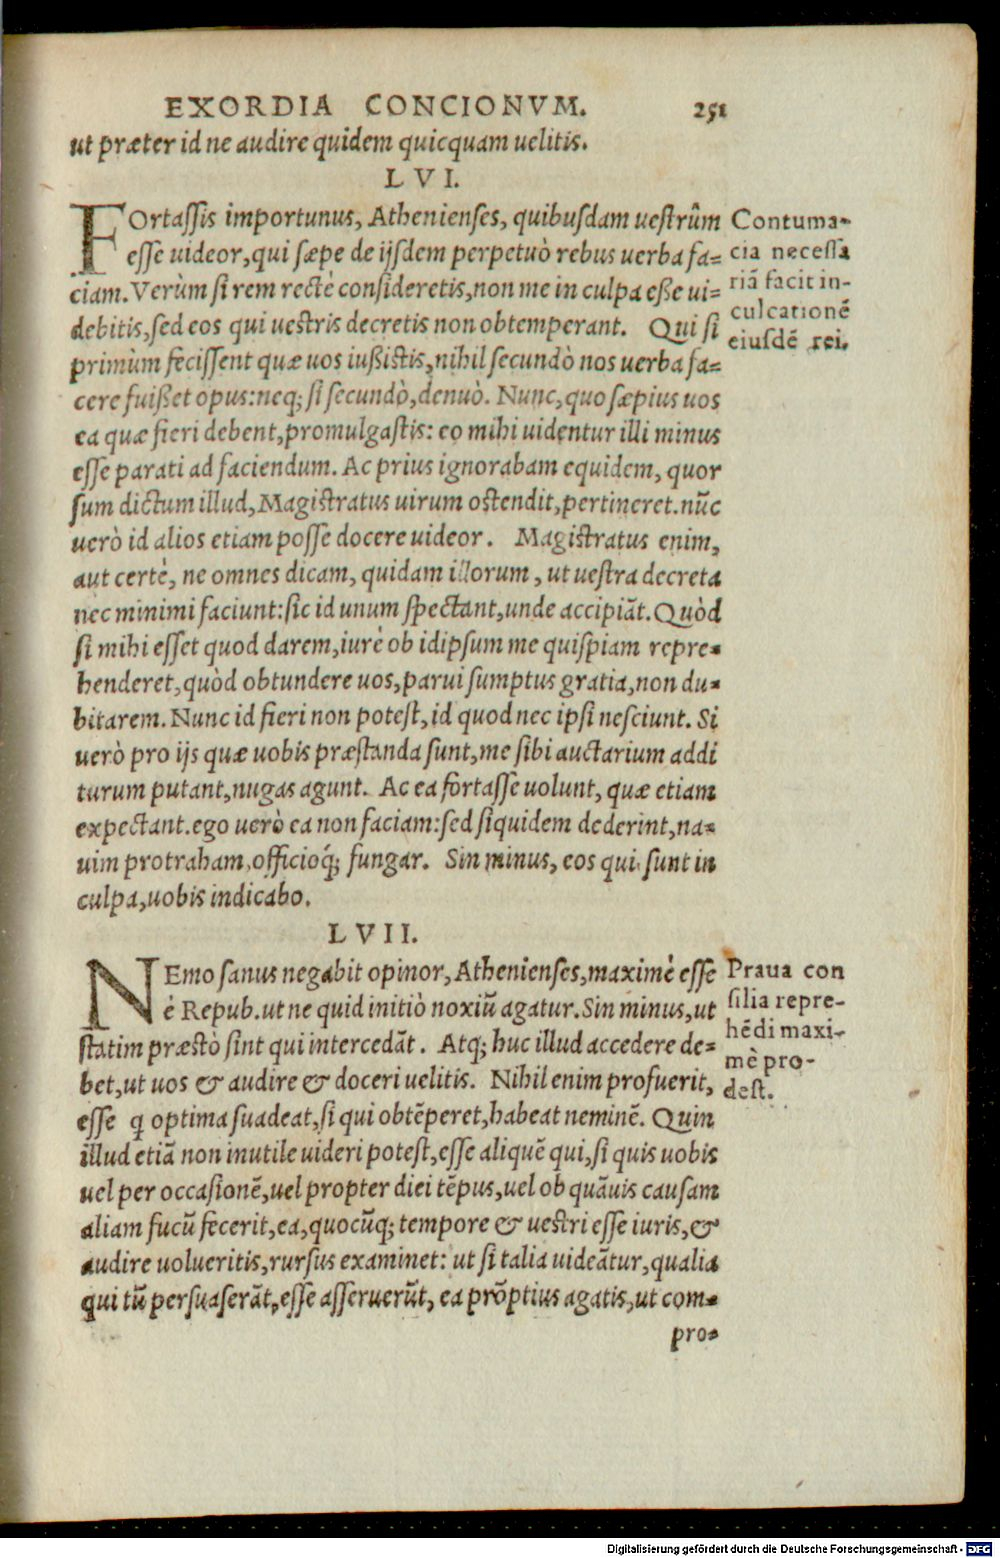 EXORDIA CONCIONVM. 251
ut præter id ne audire quidem quicquam uelitis.
LVI.
FOrtassis importunus, Athenienses, quibusdam uestrûm
esse uideor, qui sæpe de ijsdem perpetuò rebus uerba fa=
ciam. Verùm si rem rectè consideretis, non me in culpa eße ui=
debitis, sed eos qui uestris decretis non obtemperant. Qui si
primùm fecissent quæ uos iußistis, nihil secundò nos uerba fa=
cere fuißet opus: neq; si secundò, denuò. Nunc, quo sæpius uos
ea quæ fieri debent, promulgastis: eo mihi uidentur illi minus
esse parati ad faciendum. Ac prius ignorabam equidem, quor
sum dictum illud, Magistratus uirum ostendit, pertineret. nũc
uerò id alios etiam posse docere uideor. Magistratus enim,
aut certè, ne omnes dicam, quidam illorum, ut uestra decreta
nec minimi faciunt: sic id unum spectant, unde accipiãt. Quòd
si mihi esset quod darem, iurè ob idipsum me quispiam repre=
henderet, quòd obtundere uos, parui sumptus gratia, non du=
bitarem. Nunc id fieri non potest, id quod nec ipsi nesciunt. Si
uerò pro ijs quæ uobis præstanda sunt, me sibi auctarium addi
turum putant, nugas agunt. Ac ea fortasse uolunt, quæ etiam
expectant. ego uerò ea non faciam: sed siquidem dederint, na=
uim protraham, officioq́; fungar. Sin minus, eos qui sunt in
culpa, uobis indicabo.
Contuma-
cia necessa
riã facit in-
culcationẽ
eiusdẽ rei.
LVII.
NEmo sanus negabit opinor, Athenienses, maximè esse
è Repub. ut ne quid initiò noxiũ agatur. Sin minus, ut
statim præstò sint qui intercedãt. Atq; huc illud accedere de=
bet, ut uos & audire & doceri uelitis. Nihil enim profuerit,
esse q optima suadeat, si qui obtẽperet, habeat neminẽ. Quin
illud etiã non inutile uideri potest, esse aliquẽ qui, si quis uobis
uel per occasionẽ, uel propter diei tẽpus, uel ob quãuis causam
aliam fucũ fecerit, ea, quocũq; tempore & uestri esse iuris, &
audire uolueritis, rursus examinet: ut si talia uideãtur, qualia
qui tũ persuaserãt, esse asseruerũt, ea prõptius agatis, ut com=
pro=
Praua con
silia repre-
hẽdi maxi-
mè pro-
dest.
Digitalisierung gefördert durch die Deutsche Forschungsgemeinschaft - DFG